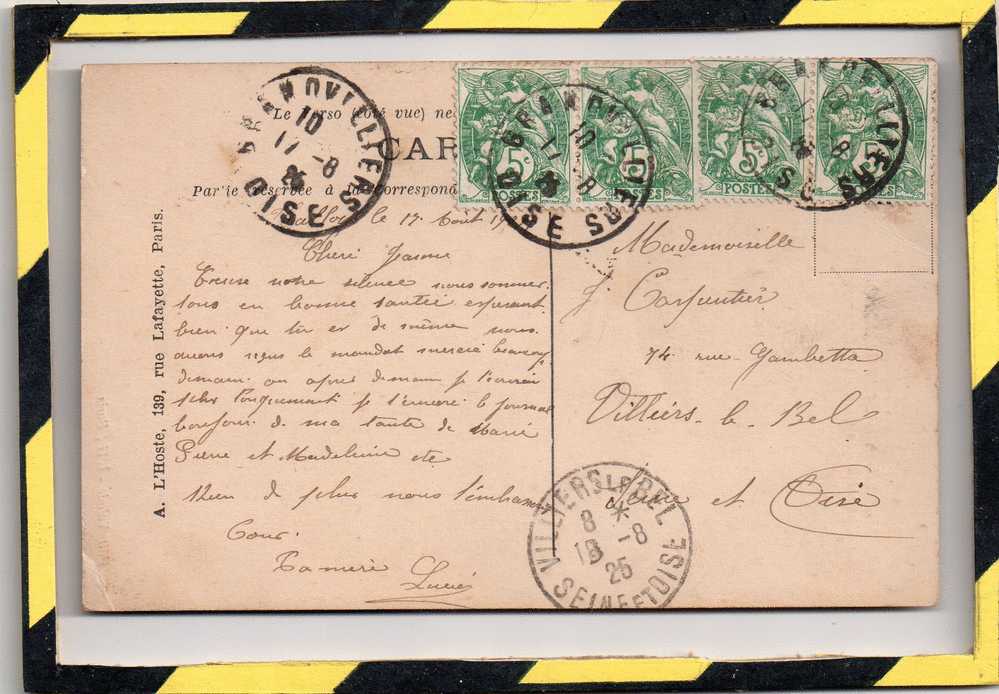 Le verso (côté vue) ne
CAR
Partie réservée à la correspond
A. L'Hoste, 139, rue Lafayette, Paris.
le 17 Août 19
Cheri Jeanne
Excuse notre silence nous sommes
tous en bonne santée esperant
bien que tu er de même nous
avons reçu le mandat mercie beaucoup
demain ou apres demain je t'écrirai
plus longuement je t'envoie le journal
bonjour de ma tante de Marie
Pierre et Madeleine etc
Rien de plus nous t'embrassons
Tous
Ta mère Lucie
Mademoiselle
J. Carpentier
74 rue Gambetta
Villiers le Bel
Seine et Oise
BRANOVILLIERS
10
17 -8
25
OISE
5c
POSTES
5c
POSTES
5c
POSTES
5c
POSTES
VILLIERS LE BEL
8 *
18 -8
25
SEINE ET OISE